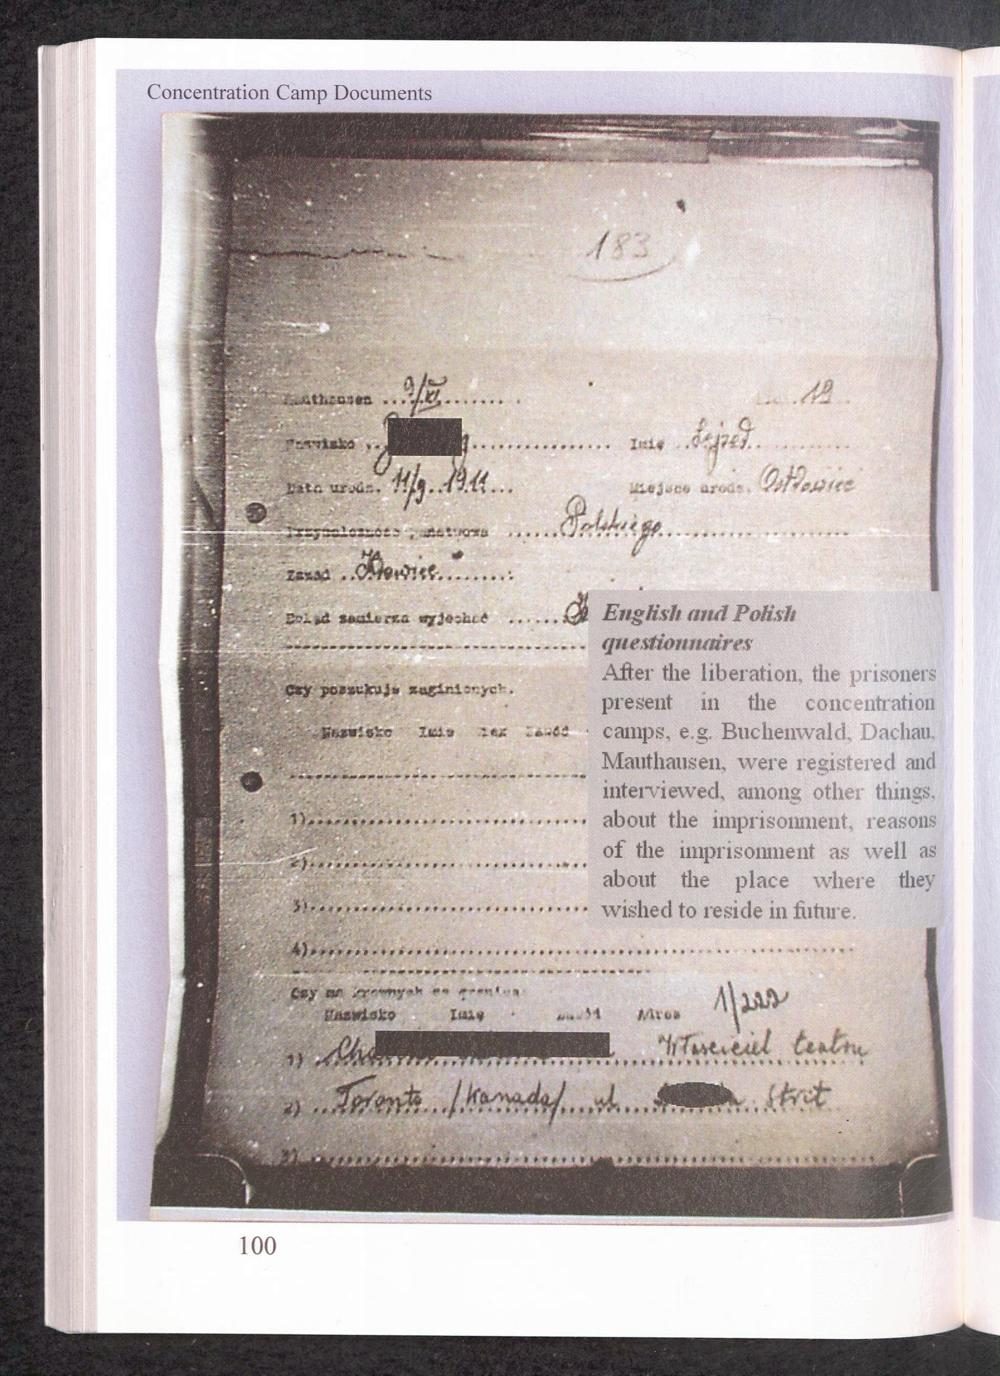 Concentration Camp Documents
183
Mauthausen ... 9/XI ......... 19..
Nazwisko ............ Imię .. Lejzed .......
Data urodz. 11/9 1911 ... Miejsce urodz. Ostrowiec
Przynależność państwowa ...... Polskiego ............
Zawód ...........
Dokąd zamierza wyjechać ......
Czy poszukuje zaginionych.
Nazwisko Imię Zawód
1)
2)
3)
4)
Czy ma krewnych za granicą:
Nazwisko Imię Zawód Adres 1/222
1) Właściciel teatru
2) Toronto /Kanada/ ul. Strit
3)
English and Polish
questionnaires
After the liberation, the prisoners
present in the concentration
camps, e.g. Buchenwald, Dachau,
Mauthausen, were registered and
interviewed, among other things,
about the imprisonment, reasons
of the imprisonment as well as
about the place where they
wished to reside in future.
100